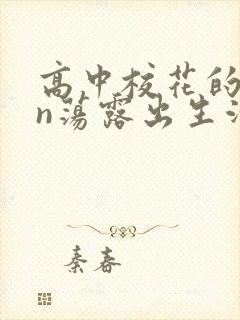 高中校花的
n荡露出生
秦春